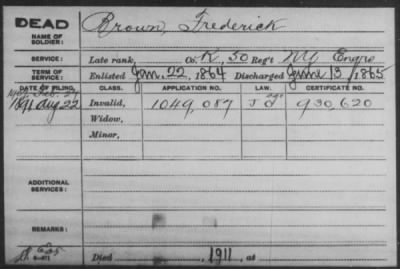 DEAD
NAME OF SOLDIER: Brown, Frederick
SERVICE: Late rank, Co. K, 50 Reg't NY Engrs
TERM OF SERVICE: Enlisted Jan. 22, 1864 Discharged June 13, 1865
DATE OF FILING. CLASS. APPLICATION NO. LAW. CERTIFICATE NO.
1891 Aug 22 Invalid, 1049,087 930,620
Widow,
Minor,
ADDITIONAL SERVICES:
REMARKS:
Died 1911, at